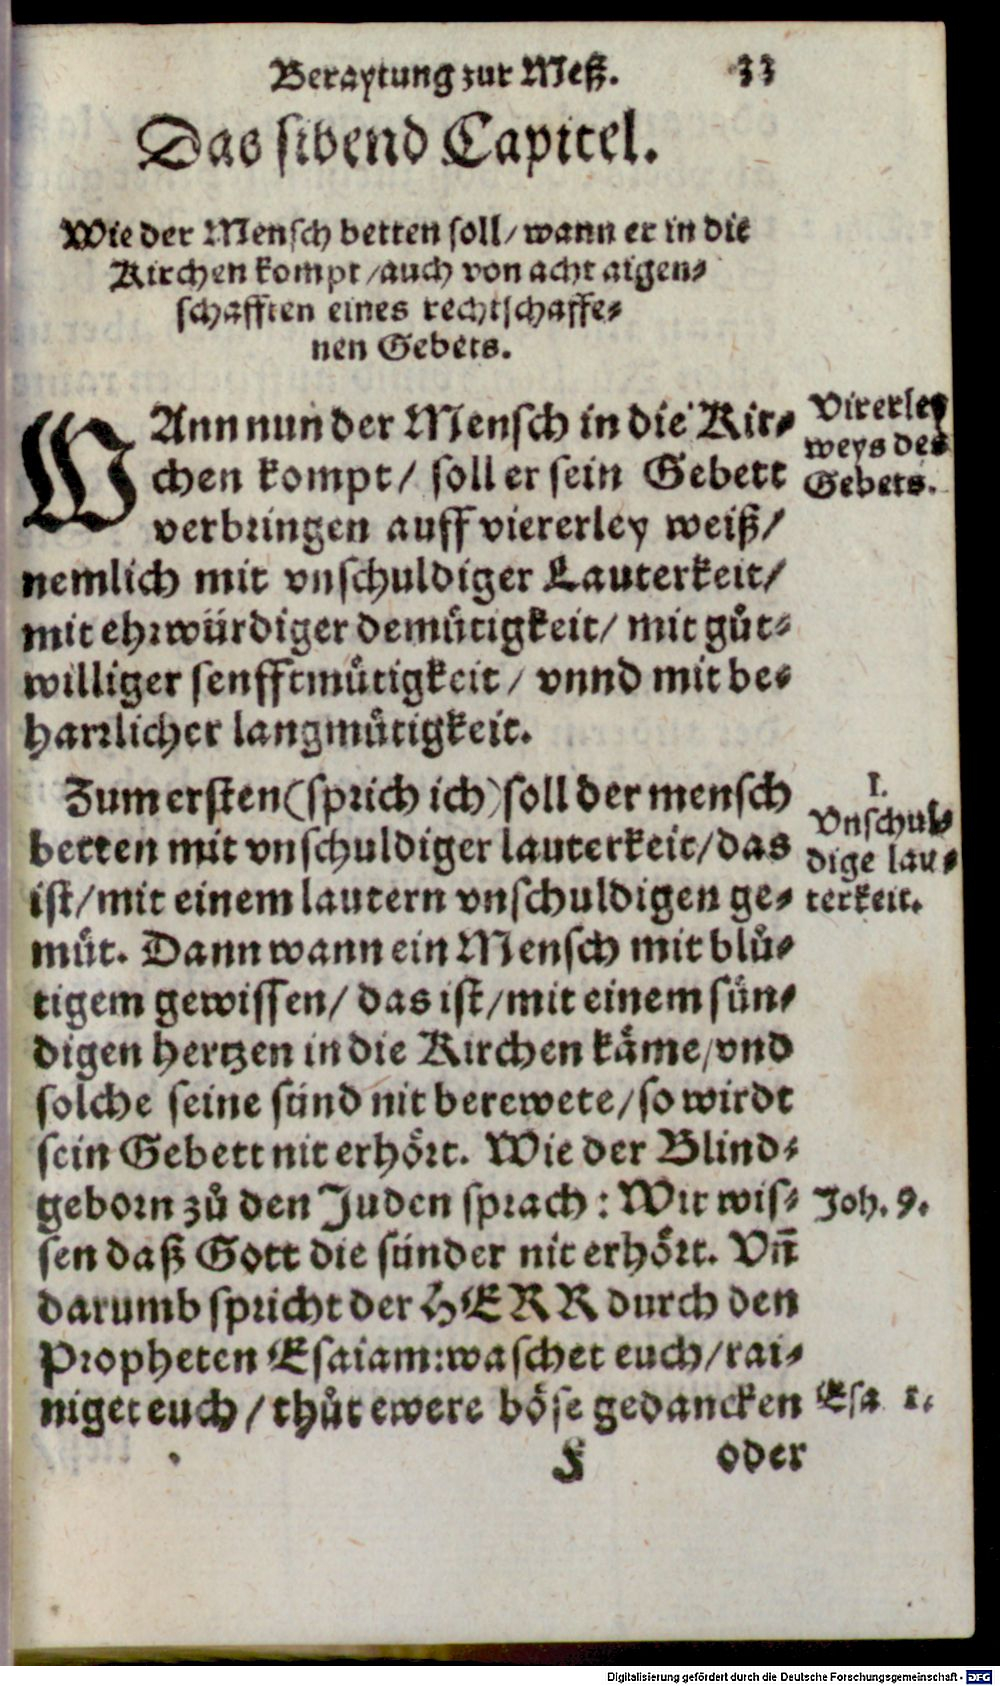 Beraytung zur Meß. 33
Das sibend Capitel.
Wie der Mensch betten soll/ wann er in die
Kirchen kompt/ auch von acht aigen⸗
schafften eines rechtschaffe⸗
nen Gebets.
WAnn nun der Mensch in die Kir⸗
chen kompt/ soll er sein Gebett
verbringen auff viererley weiß/
nemlich mit vnschuldiger Lauterkeit/
mit ehrwürdiger demuͤtigkeit/ mit guͦt⸗
williger senfftmuͤtigkeit/ vnnd mit be⸗
harrlicher langmuͤtigkeit.
Virerley
weys des
Gebets.
Zum ersten (sprich ich) soll der mensch
betten mit vnschuldiger lauterkeit/ das
ist/ mit einem lautern vnschuldigen ge⸗
muͤt. Dann wann ein Mensch mit bluͦ⸗
tigem gewissen/ das ist/ mit einem sün⸗
digen hertzen in die Kirchen kaͤme/ vnd
solche seine sünd nit berewete/ so wirdt
sein Gebett nit erhoͤrt. Wie der Blind⸗
geborn zuͦ den Juden sprach: Wir wis⸗
sen daß Gott die sünder nit erhoͤrt. Vñ
darumb spricht der HERR durch den
Propheten Esaiam: waschet euch/ rai⸗
niget euch/ thuͦt ewere boͤse gedancken
I.
Vnschul⸗
dige lau⸗
terkeit.
Joh. 9.
Esa 1.
F oder
Digitalisierung gefördert durch die Deutsche Forschungsgemeinschaft - DFG